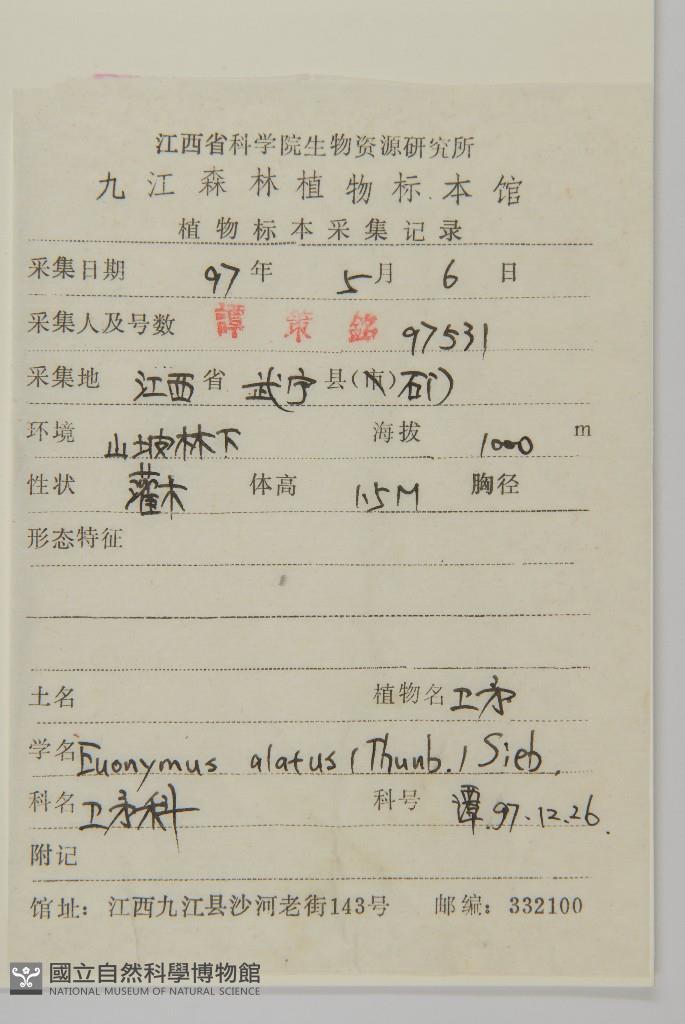 江西省科学院生物资源研究所
九江森林植物标本馆
植物标本采集记录
采集日期 97年 5月 6日
采集人及号数 譚策銘 97531
采集地 江西省 武宁县(市)石门
环境 山坡林下 海拔 1000 m
性状 灌木 体高 1.5M 胸径
形态特征
土名 植物名 卫矛
学名 Euonymus alatus (Thunb.) Sieb.
科名 卫矛科 科号 譚.97.12.26.
附记
馆址：江西九江县沙河老街143号 邮编：332100
國立自然科學博物館
NATIONAL MUSEUM OF NATURAL SCIENCE